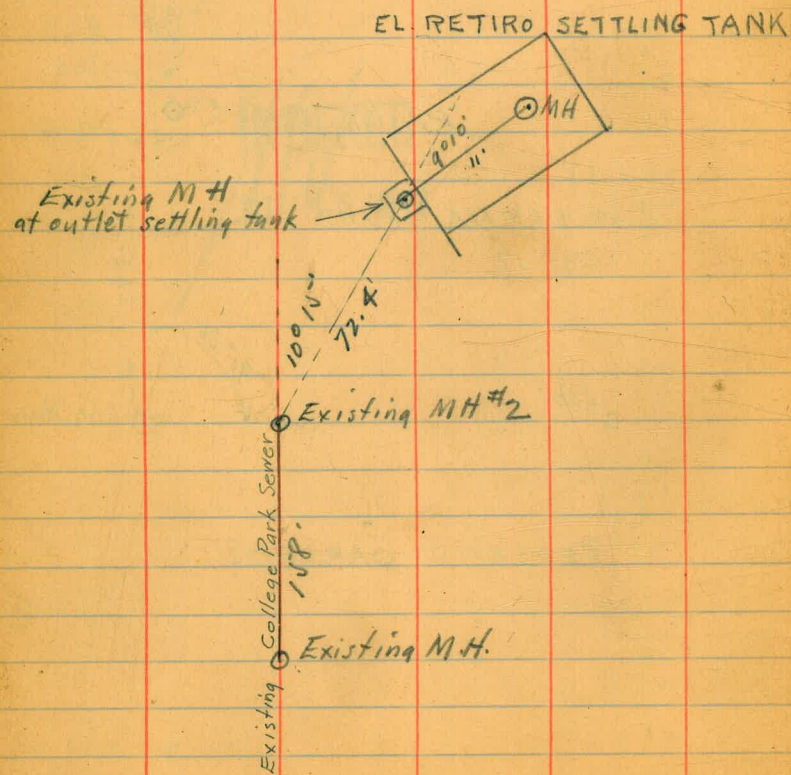 EL RETIRO SETTLING TANK
MH
9°10'
11'
Existing MH
at outlet settling tank
10° 15'
72.4'
Existing MH #2
Existing College Park Sewer
158.
Existing M.H.